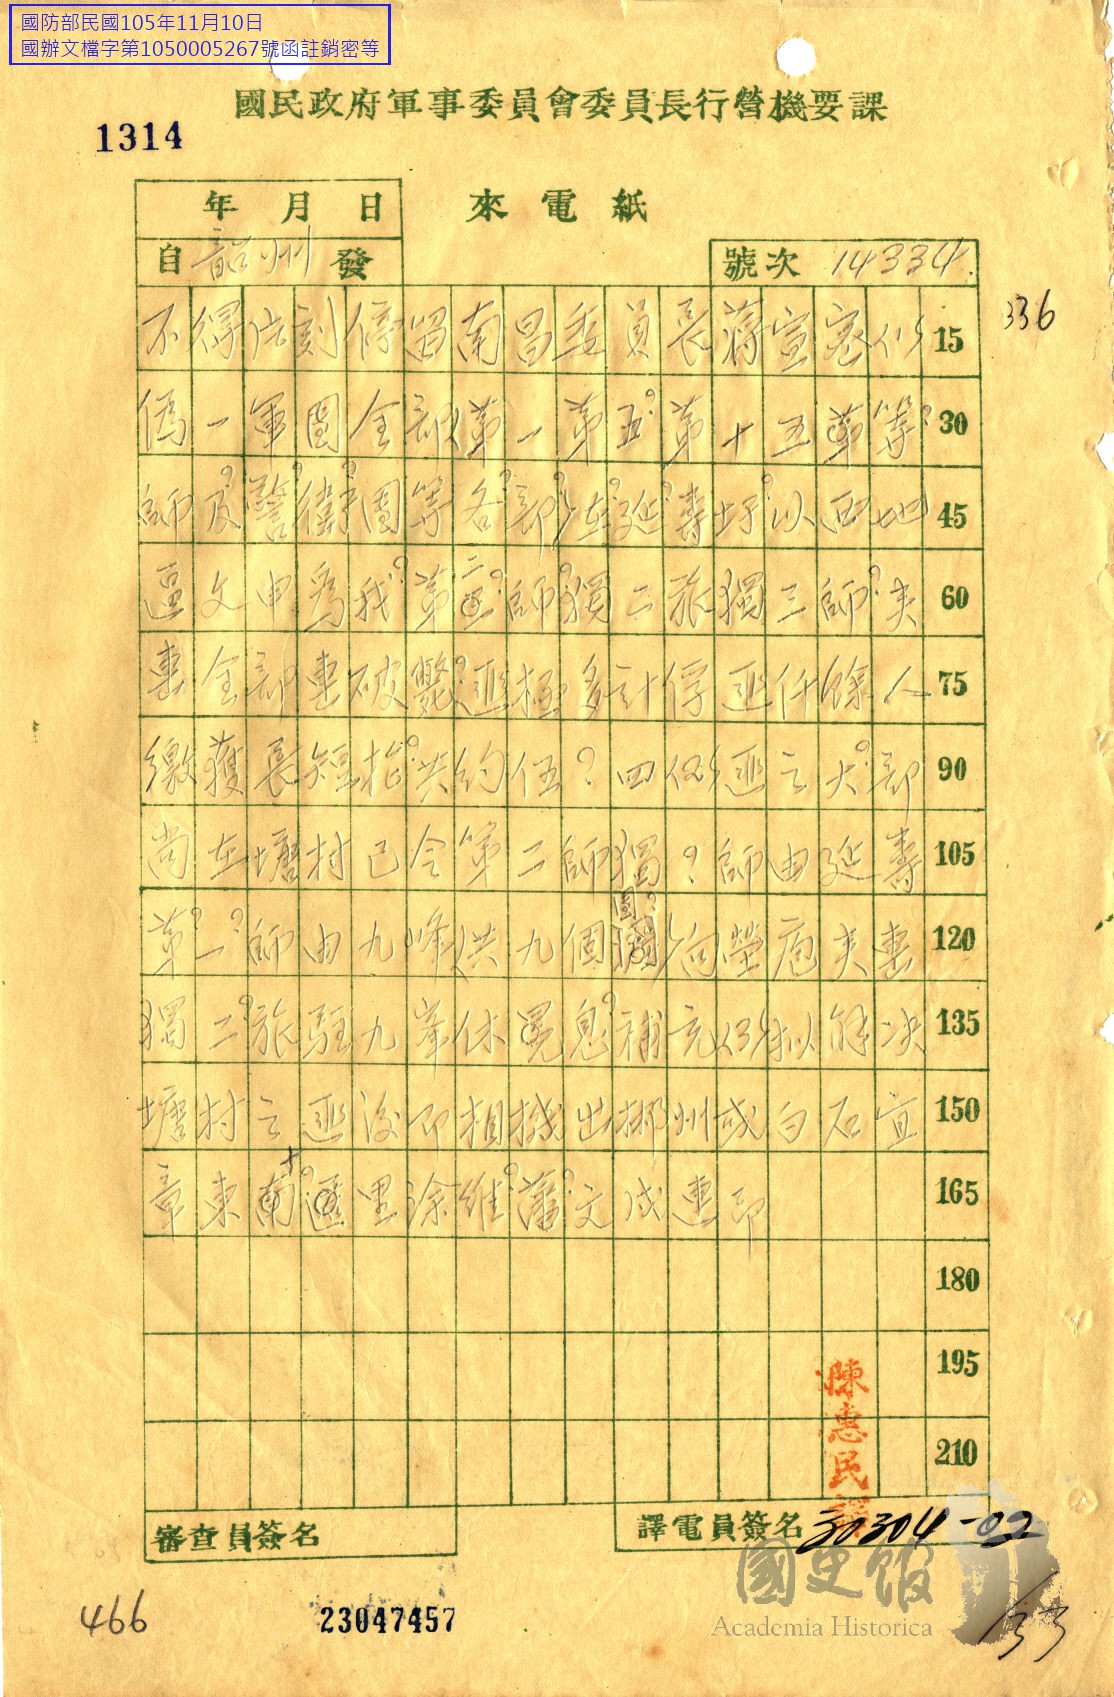 國防部民國105年11月10日
國辦文檔字第1050005267號函註銷密等
國民政府軍事委員會委員長行營機要課
1314
年 月 日
來電紙
自韶州發
號次 14334
336
不得片刻停留南昌委員長蔣宣密似 15
偽一軍團全部第一第五?第十五第等? 30
師及?警?衛?團等各?部在?延?壽圩?以西地 45
區文申為我?第二?師?獨二旅獨三師?夾 60
擊全部擊破斃?匪極多計俘匪仟餘人 75
繳獲長短槍?共約伍?四?匪之大?部 90
尚在塘村已令第二師獨?師由延壽 105
第?一?師由九峰共九個團?向?夾擊 120
獨二?旅駐九峯休息?補充仍擬解決 135
塘村之匪後即相機出郴州或白石宜 150
章東南十?里余維?藩?文戌連印 165
180
195
210
陳惠民譯
審查員簽名
譯電員簽名
30304-02
466
23047457
國史館
Academia Historica